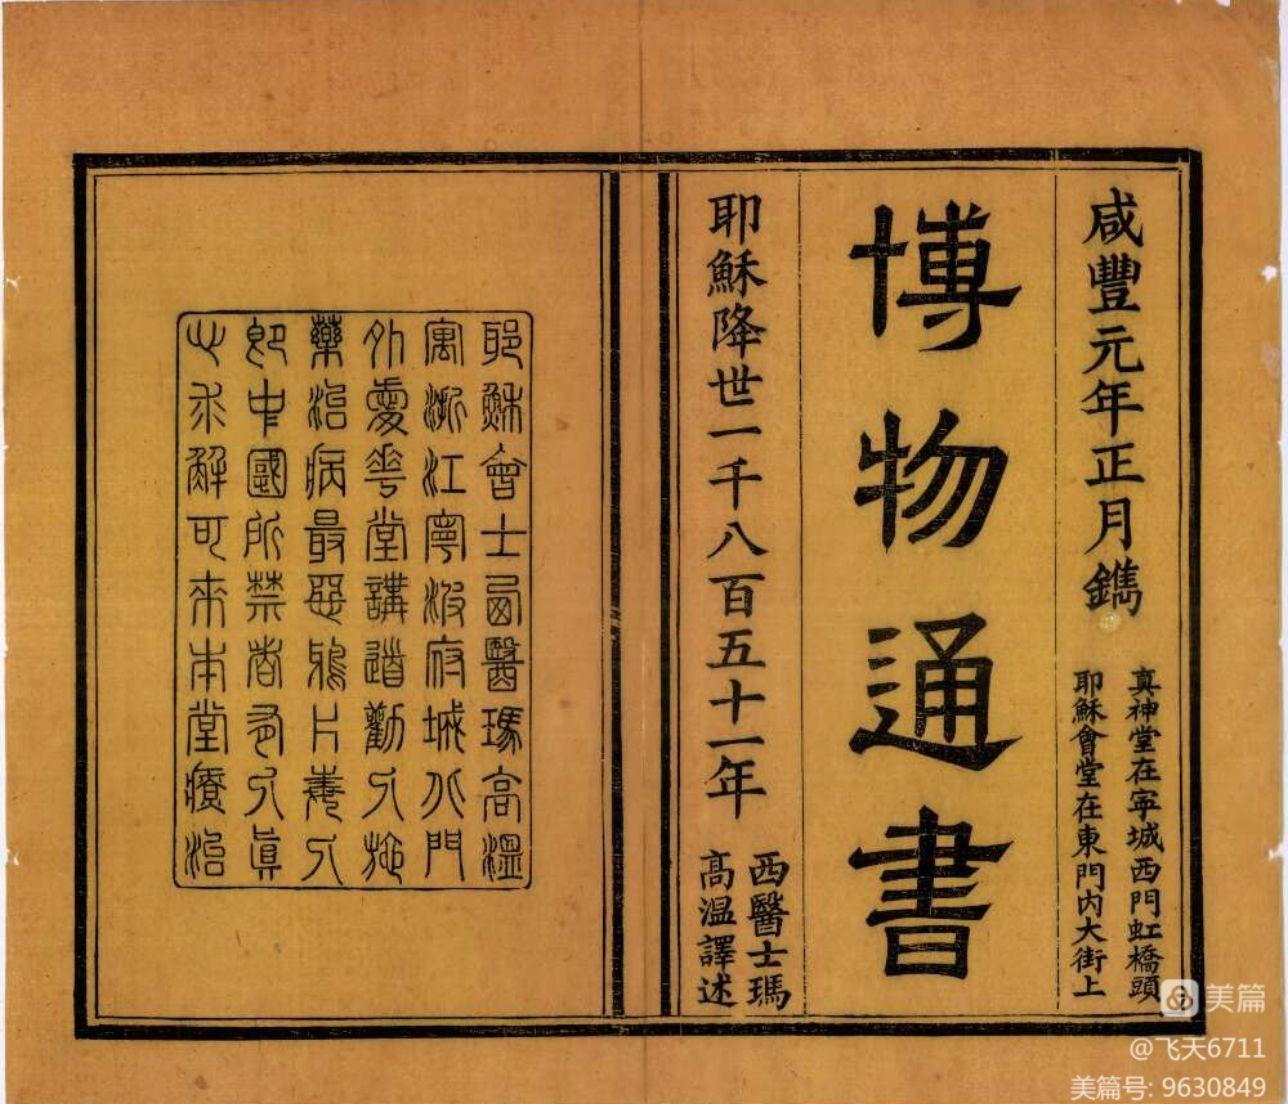 咸豐元年正月鐫
真神堂在寜城西門虹橋頭
耶穌會堂在東門内大街上
博物通書
耶穌降世一千八百五十一年
西醫士瑪
高温譯述
耶穌會士西醫瑪高溫
寓浙江寧波府城北門
外愛華堂講道勸人施
藥治病最惡鴉片毒人
即中國所禁者多人真
心求解可來本堂療治
美篇
@飞天6711
美篇号: 9630849